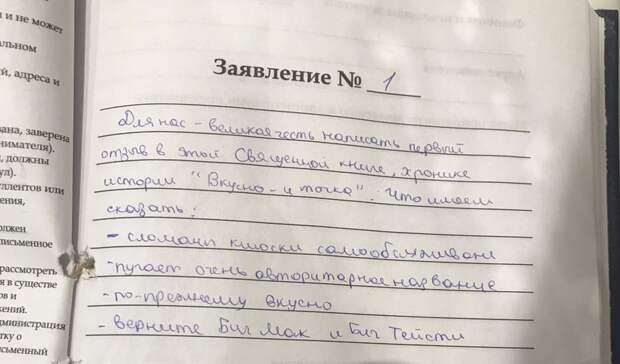 и не может
альном
й, адреса и
ана, заверена
нимателя).
, должны
ул).
уллентов или
ения,
олжен
письменное
рассмотреть
я в существе
ов и
жений.
дминистрация
тку о
исьменный
Заявление № 1
Для нас - великая честь написать первый
отзыв в этой Священной книге, хронике
истории "Вкусно - и точка". Что имеем
сказать:
- сломаны киоски самообслуживани
- пугает очень авторитарное название
- по-прежнему вкусно
- верните Биг Мак и Биг Тейсти